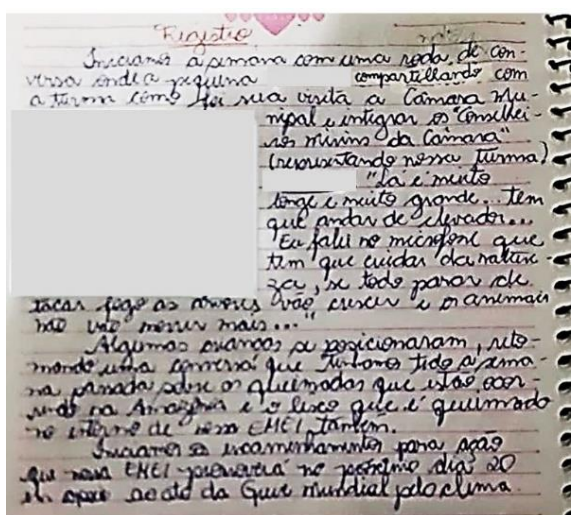 Registro
Iniciamos a semana com uma roda de con-
versa onde a pequena compartilhando com
a turma como foi sua visita a Câmara Mu-
nipal e integrar os "Conselhei-
ros mirins da Câmara"
(representando nossa turma)
"Lá é muito
longe e muito grande... tem
que andar de elevador...
Eu falei no microfone que
tem que cuidar da nature-
za, se todo parar de
tacar fogo as árvores vão crescer e os animais
não vão morrer mais..."
Algumas crianças se posicionaram, reto-
mando uma conversa que tínhamos tido a sema-
na passada sobre as queimadas que estão ocor-
rendo na Amazônia e o lixo que é queimado
no entorno de nossa EMEI também.
Iniciamos os encaminhamentos para ação
que nossa EMEI promoverá no próximo dia 20
em apoio ao ato da Greve Mundial pelo clima.